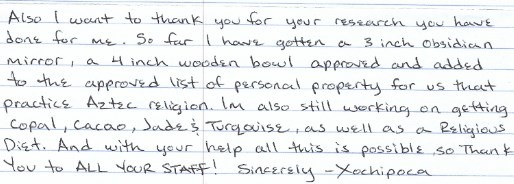 Also I want to thank you for your research you have
done for me. So far I have gotten a 3 inch Obsidian
mirror, a 4 inch wooden bowl approved and added
to the approved list of personal property for us that
practice Aztec religion. Im also still working on getting
Copal, Cacao, Jade & Turqouise, as well as a Religious
Diet. And with your help all this is possible so Thank
You to ALL YOUR STAFF! Sincerely - Xochipoca